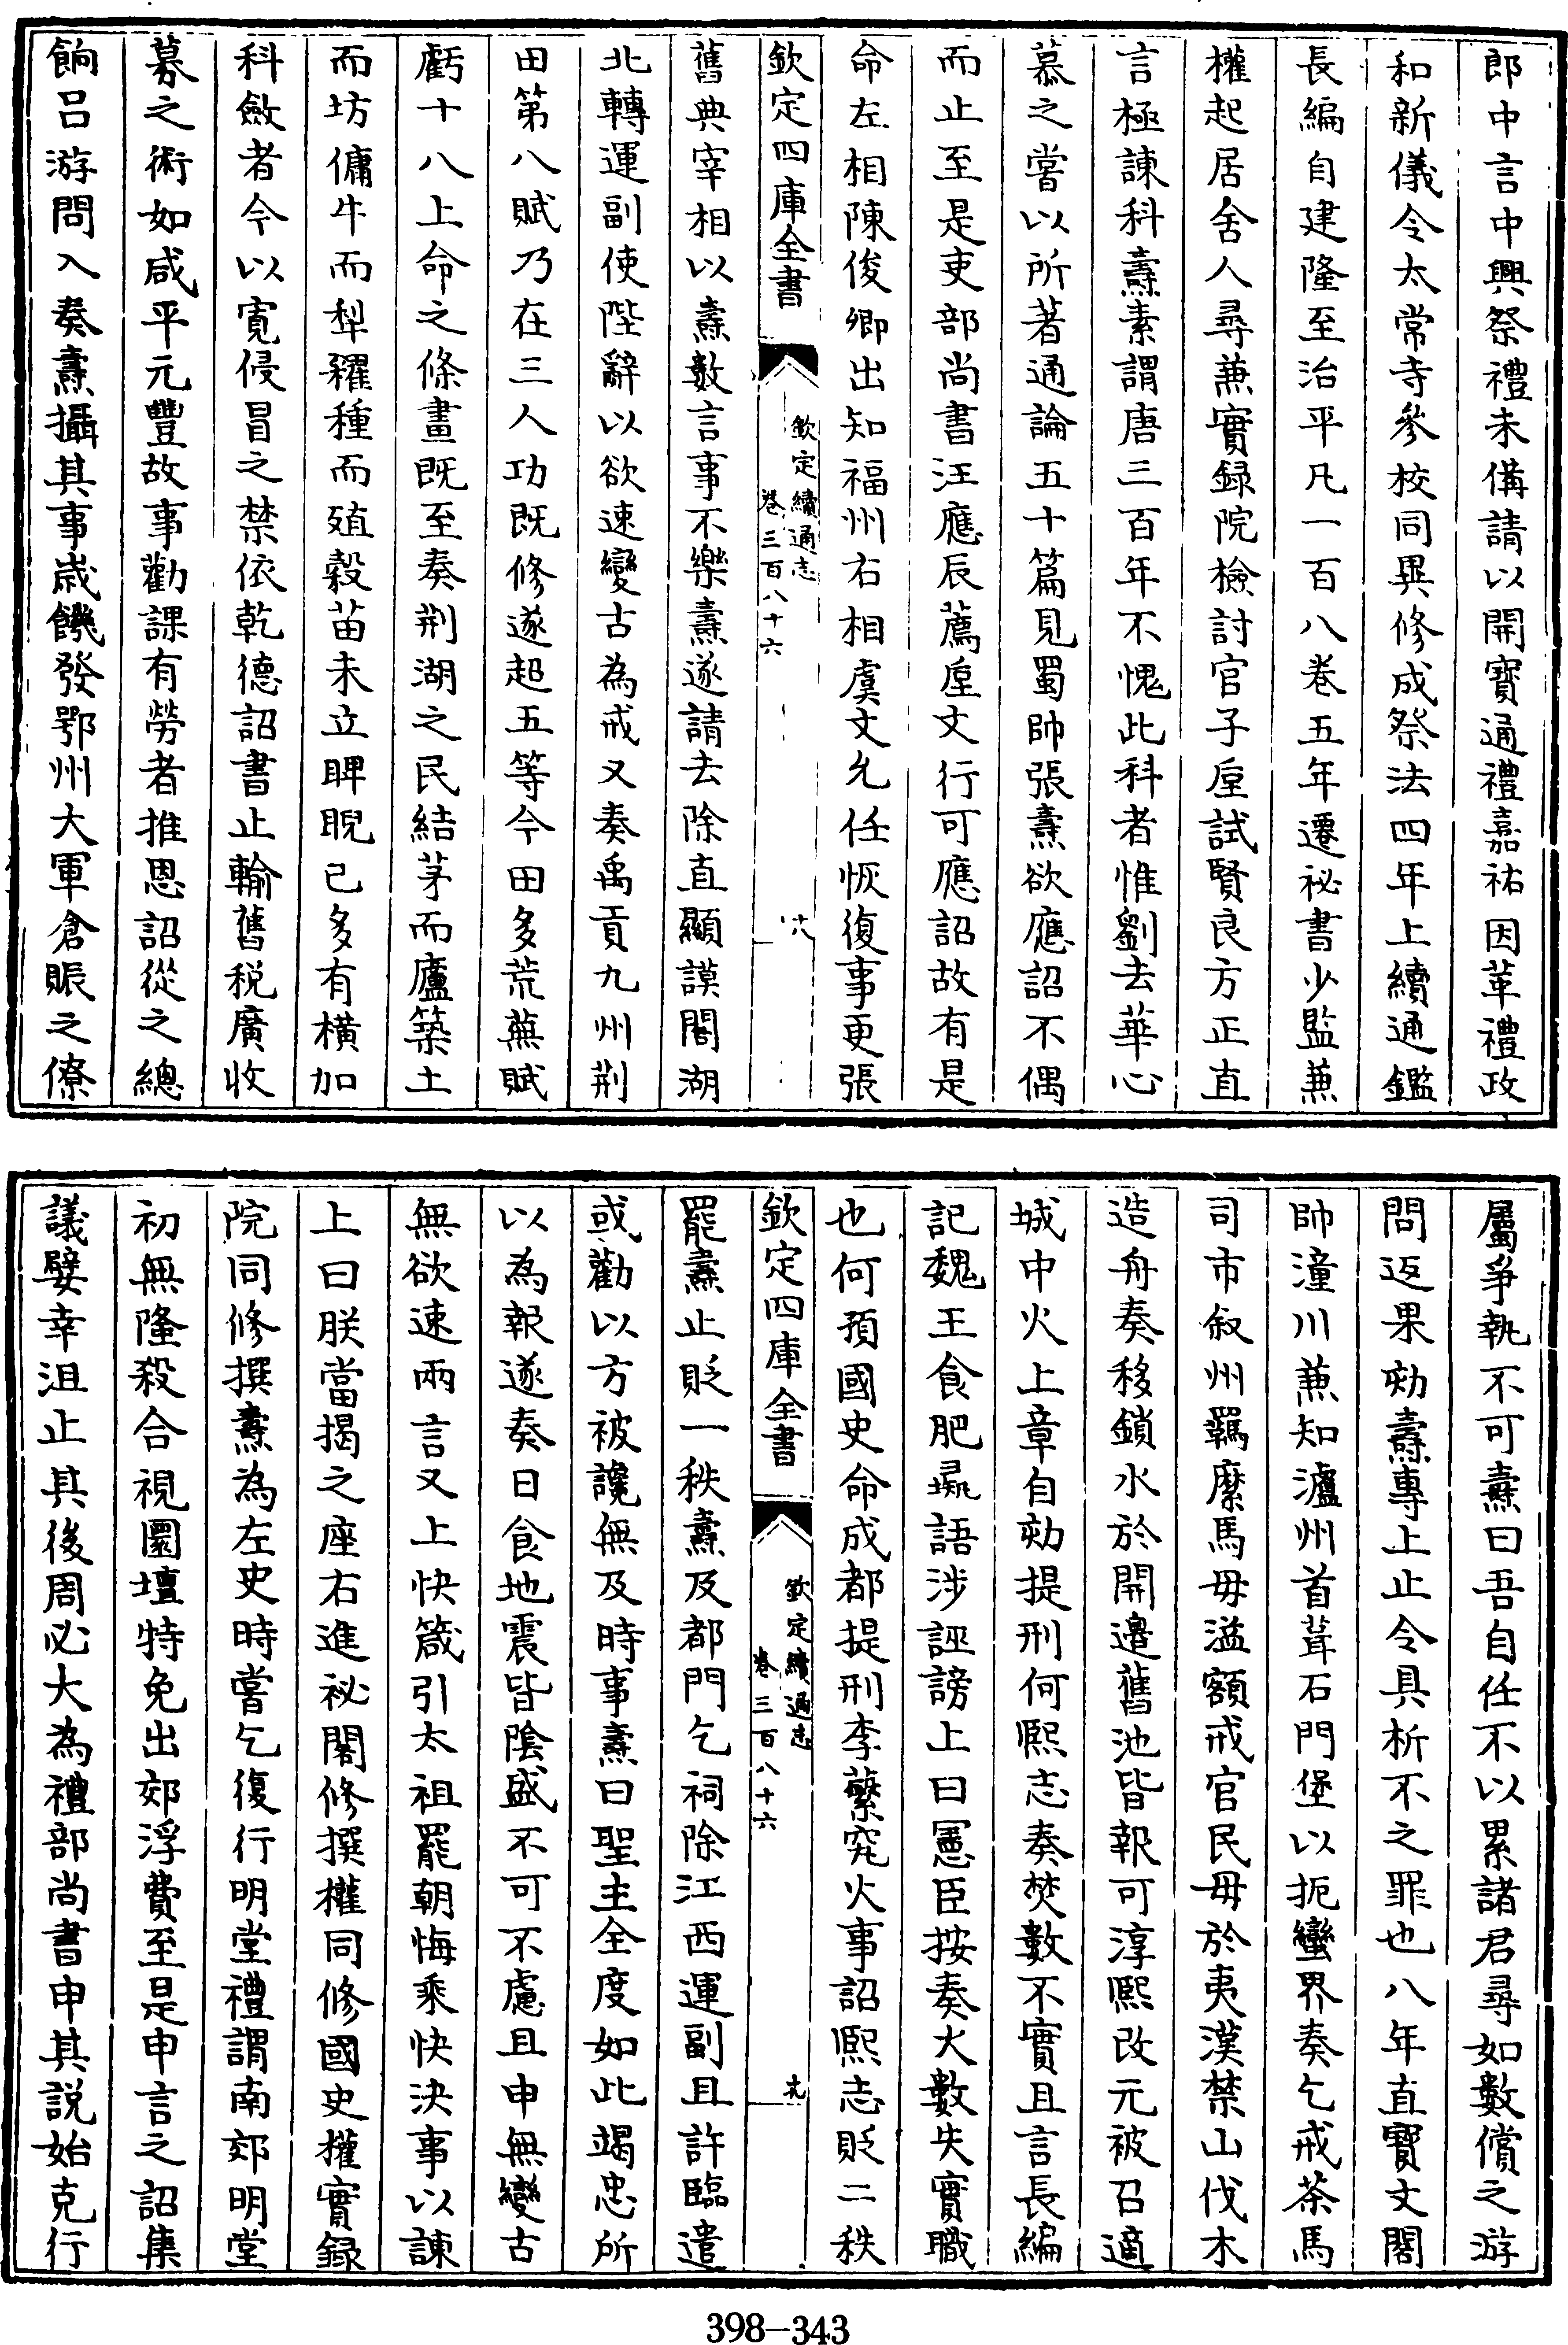 郎中言中興祭禮未備請以開寳通禮嘉祐因革禮政
和新儀令太常寺參校同異修成祭法四年上續通鑑
長編自建隆至治平凡一百八卷五年遷祕書少監兼
權起居舍人尋兼實録院檢討官子垕試賢良方正直
言極諫科燾素謂唐三百年不愧此科者惟劉去華心
慕之嘗以所著通論五十篇見蜀帥張燾欲應詔不偶
而止至是吏部尚書汪應辰薦垕文行可應詔故有是
命左相陳俊卿出知福州右相虞文允任恢復事更張
欽定四庫全書
欽定續通志
卷三百八十六
十八
舊典宰相以燾數言事不樂燾遂請去除直顯謨閣湖
北轉運副使陛辭以欲速變古為戒又奏禹貢九州荆
田第八賦乃在三人功既修遂超五等今田多荒蕪賦
虧十八上命之條畫既至奏荆湖之民結茅而廬築土
而坊傭牛而犁糴種而殖穀苗未立睥睨已多有橫加
科斂者今以寛侵冒之禁依乾德詔書止輸舊税廣收
募之術如咸平元豐故事勸課有勞者推恩詔從之總
餉吕游問入奏燾攝其事歲饑發鄂州大軍倉賑之僚
屬爭執不可燾曰吾自任不以累諸君尋如數償之游
問返果劾燾專上止令具析不之罪也八年直寳文閣
帥潼川兼知瀘州首葺石門堡以扼蠻界奏乞戒茶馬
司市叙州羈縻馬毋溢額戒官民毋於夷漢禁山伐木
造舟奏移鎖水於開邉舊池皆報可淳熙改元被召適
城中火上章自劾提刑何熙志奏焚數不實且言長編
記魏王食肥彘語涉誣謗上曰憲臣按奏火數失實職
也何預國史命成都提刑李蘩究火事詔熙志貶二秩
欽定四庫全書
欽定續通志
卷三百八十六
十九
罷燾止貶一秩燾及都門乞祠除江西運副且許臨遣
或勸以方被讒無及時事燾曰聖主全度如此竭忠所
以為報遂奏日食地震皆陰盛不可不慮且申無變古
無欲速兩言又上快箴引太祖罷朝悔乘快決事以諫
上曰朕當揭之座右進祕閣修撰權同修國史權實録
院同修撰燾為左史時嘗乞復行明堂禮謂南郊明堂
初無隆殺合視圜壇特免出郊浮費至是申言之詔集
議嬖幸沮止其後周必大為禮部尚書申其説始克行
398-343